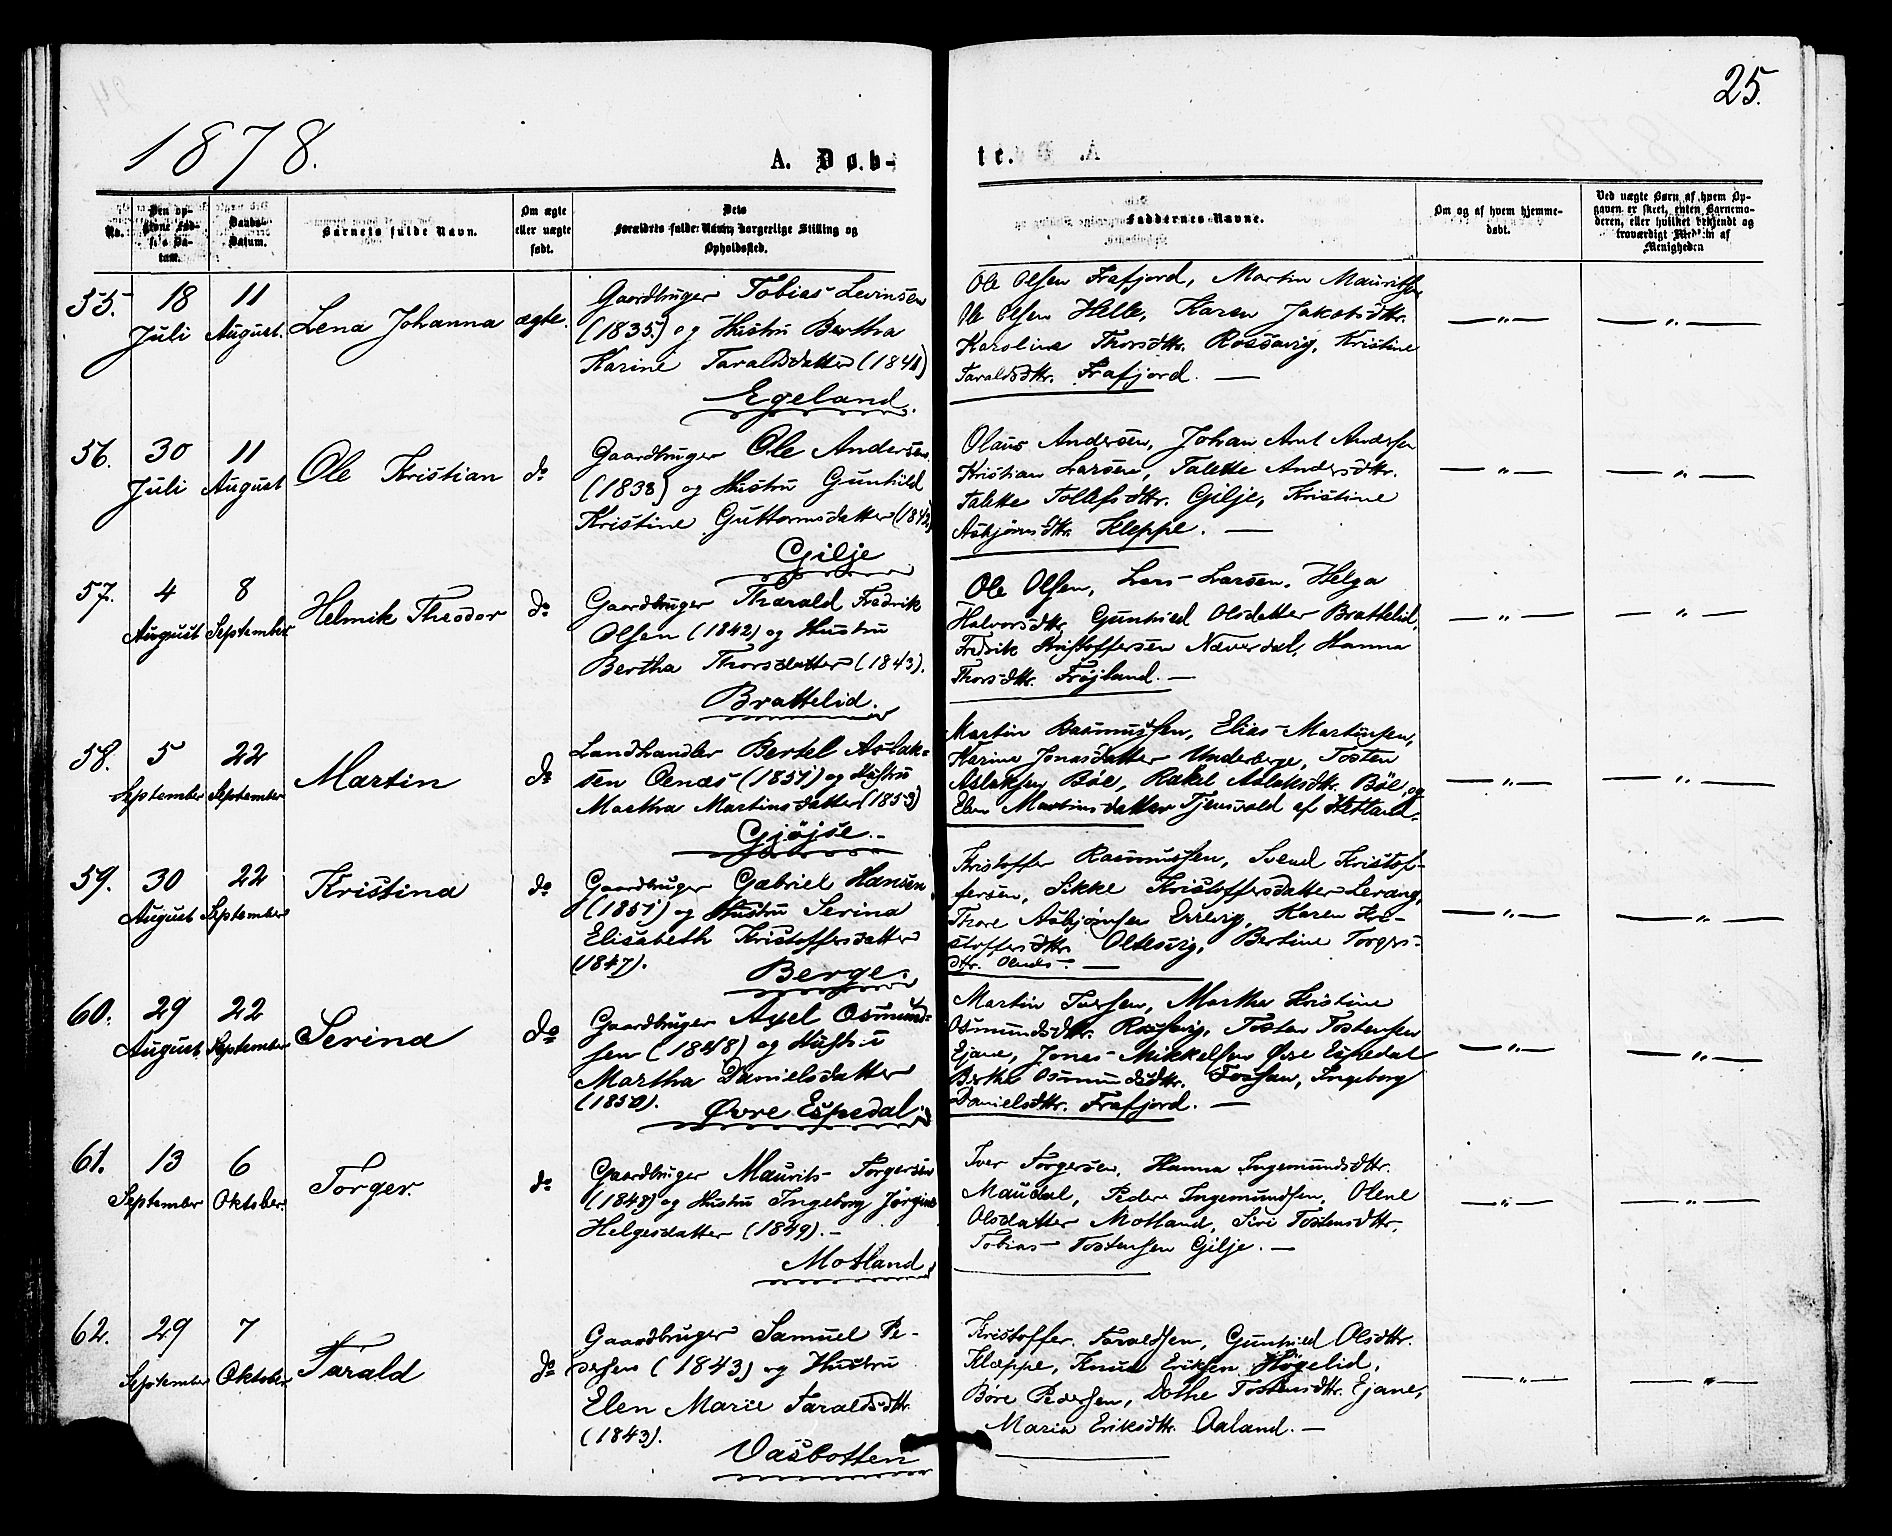 25.
1878.
A. Døb-
te.
No.
Den op-
givne Fød-
sels Da-
tum.
Daabs-
Datum.
Barnets fulde Navn.
Om ægte
eller uægte
født.
Dets
Forældres fulde Navn, borgerlige Stilling og
Opholdssted.
Faddernes Navne.
Om og af hvem hjemme-
døbt.
Ved uægte Børn af hvem Op-
gaven er skeet, enten Barnemo-
deren, eller hvilket bekjendt og
troværdigt Medlem af
Menigheden
55. 18 Juli 11 August. Lena Johanna ægte.
Gaardbruger Tobias Levinsen
(1835.) og Hustru Bertha
Karine Taraldsdatter (1841)
Egeland.
Ole Olsen Frafjord, Martin Mauritsen
Ole Olsen Helle, Karen Jakobsdttr.
Karoline Thorsdttr. Rossavig, Kristine
Taraldsdttr. Frafjord. —
— " — — " —
56. 30 Juli 11 August Ole Kristian do
Gaardbruger Ole Andersen
(1838) og Hustru Gunhild
Kristine Guttormsdatter (1842)
Gilje
Olaus Andersen, Johan Arnt Andersen
Kristian Larsen, Talette Andersdttr.
Talette Tollefsdttr. Gilje, Kristine
Asbjørnsdttr. Kleppe. —
— " — — " —
57. 4 August 8 September Helmik Theodor do
Gaardbruger Tharald Fredrik
Olsen (1842) og Hustru
Bertha Thorsdatter (1843).
Brattelid.
Ole Olsen, Lars Larsen, Helga
Halvorsdttr. Gunhild Olsdatter Brattelid,
Fredrik Kristoffersen Næverdal, Hanna
Thorsdttr. Frøjland. —
— " — — " —
58. 5 September 22 September Martin do
Landhandler Bertel Aslak-
sen Oenæs (1851) og Hustru
Martha Martinsdatter (1853)
Gjøjse.
Martin Rasmussen, Elias Martinsen,
Karine Jonasdatter Underberge, Tosten
Aslaksen Bøe, Rakel Aslaksdttr. Bøe, og
Elen Martinsdatter Tjensvold af Hetland.
— " — — " —
59. 30 August 22 September Kristina do
Gaardbruger Gabriel Hansen
(1851) og Hustru Serina
Elisabeth Kristoffersdatter
(1847).
Berge.
Kristoffer Rasmussen, Svend Kristof-
fersen, Sikke Kristoffersdatter Levang,
Thore Asbjørnsen Errevig, Karen Kri-
stoffersdttr. Oltesvig, Bertine Torgers-
dttr. Oenæs. —
— " — — " —
60. 29 August 22 September Serina do
Gaardbruger Axel Osmund-
sen (1848) og Hustru
Martha Danielsdatter
(1850).
Øvre Espedal.
Martin Iversen, Martha Kristine
Osmundsdttr. Tosten Tostensen
Ejane, Jonas Mikkelsen Øvre Espedal
Berthe Osmundsdttr. Fossan, Ingeborg
Danielsdttr. Frafjord. —
— " — — " —
61. 13 September 6 Oktober. Torger. do
Gaardbruger Maurits Torgersen
(1848) og Hustru Ingeborg Jørgine
Helgesdatter (1849). —
Motland.
Iver Torgersen, Hanna Ingemundsdttr.
Maudal, Peder Ingemundsen, Olene
Olsdatter Motland, Siri Tostensdttr.
Tobias Tostensen Gilje. —
— " — — " —
62. 29 September 7 Oktober Tarald do
Gaardbruger Samuel Pe-
dersen (1843) og Hustru
Elen Marie Taraldsdttr.
(1843).
Vasbotten
Kristoffer Taraldsen, Gunhild Olsdttr.
Kleppe, Knud Eriksen Høgelid,
Børe Pedersen, Dothe Tostensdttr. Ejane,
Maria Eriksdttr. Aaland. —
— " — — " —